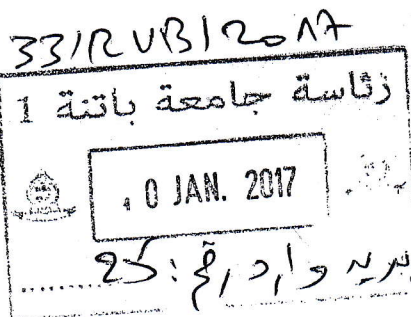 33/RUB/2017
رئاسة جامعة باتنة 1
0 JAN. 2017
بريد وارد رقم: 25